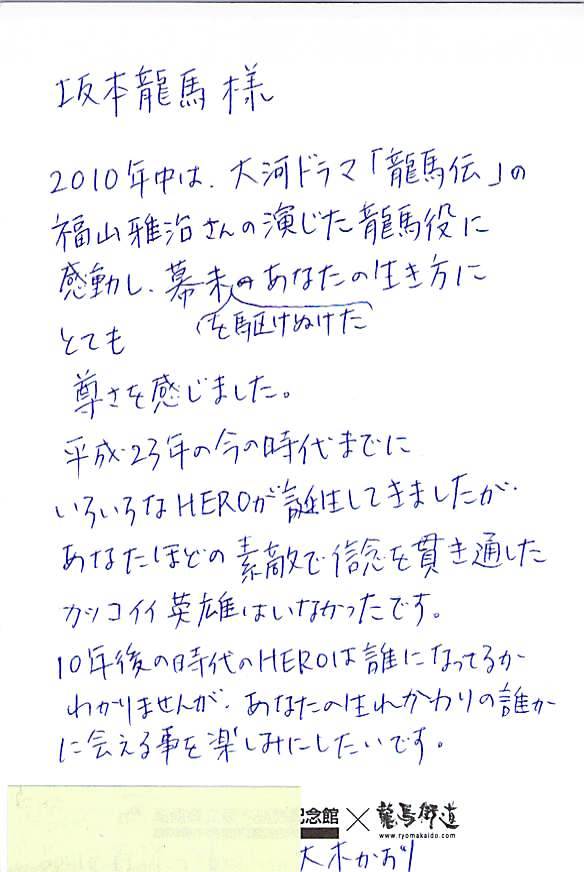 坂本龍馬様
2010年中は、大河ドラマ「龍馬伝」の
福山雅治さんの演じた龍馬役に
感動し、幕末のあなたの生き方に
を駆けぬけた
とても
尊さを感じました。
平成23年の今の時代までに
いろいろなHEROが誕生してきましたが、
あなたほどの素敵で信念を貫き通した
カッコイイ英雄はいなかったです。
10年後の時代のHEROは誰になってるか
わかりませんが、あなたの生れかわりの誰か
に会える事を楽しみにしたいです。
記念館×龍馬街道
www.ryomakaido.com
大木かおり